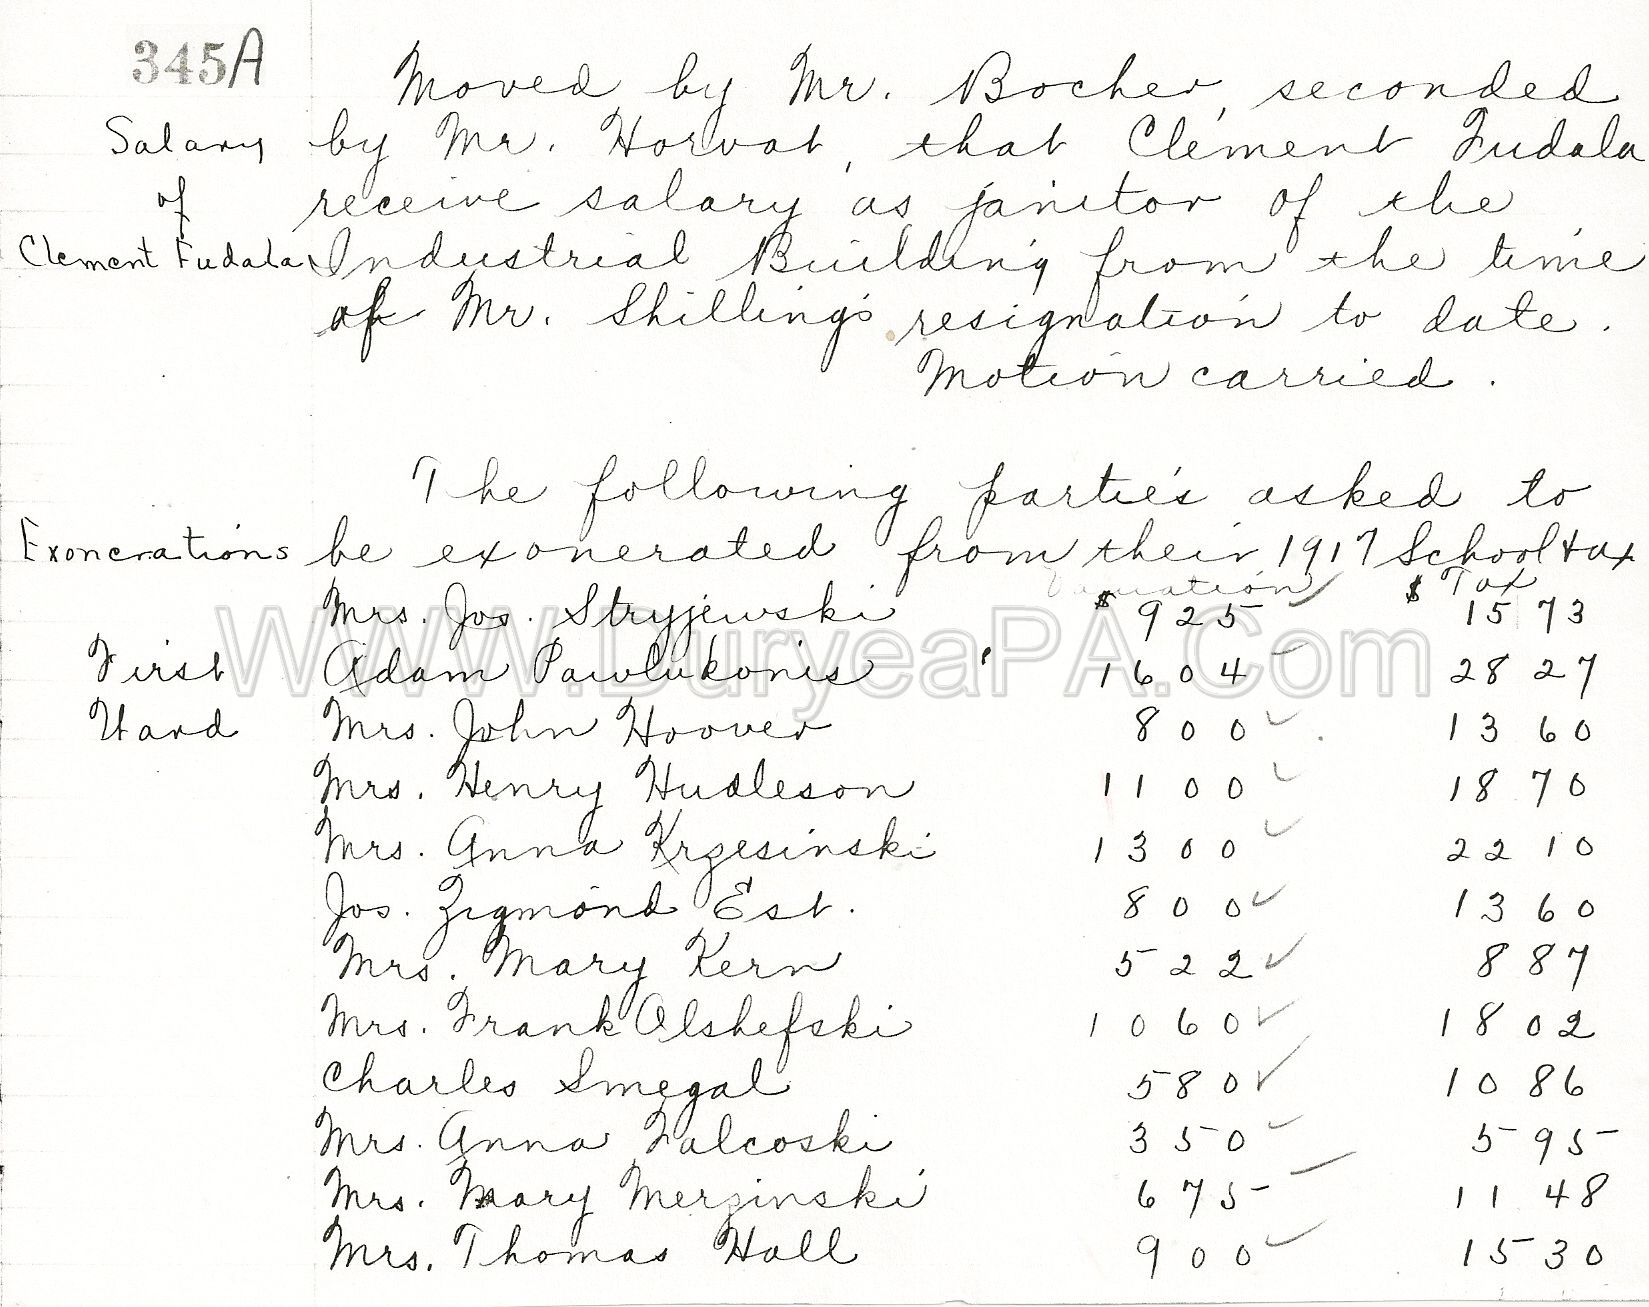 345A
Moved by Mr. Bocher, seconded
Salary by Mr. Horvat, that Clement Fudala
of receive salary as janitor of the
Clement Fudala Industrial Building from the time
of Mr. Shilling's resignation to date.
Motion carried.
The following parties asked to
Exonerations be exonerated from their 1917 School tax
Valuation Tax
Mrs. Jos. Stryjewski $ 925 $ 15 73
First Adam Pawlukonis 1604 28 27
Ward Mrs. John Hoover 800 13 60
Mrs. Henry Hudleson 1100 18 70
Mrs. Anna Krzesinski 1300 22 10
Jos. Zigmond Est. 800 13 60
Mrs. Mary Kern 522 8 87
Mrs. Frank Olshefski 1060 18 02
Charles Smegal 580 10 86
Mrs. Anna Falcoski 350 5 95
Mrs. Mary Merzinski 675 11 48
Mrs. Thomas Hall 900 15 30
WWW.DuryeaPA.Com